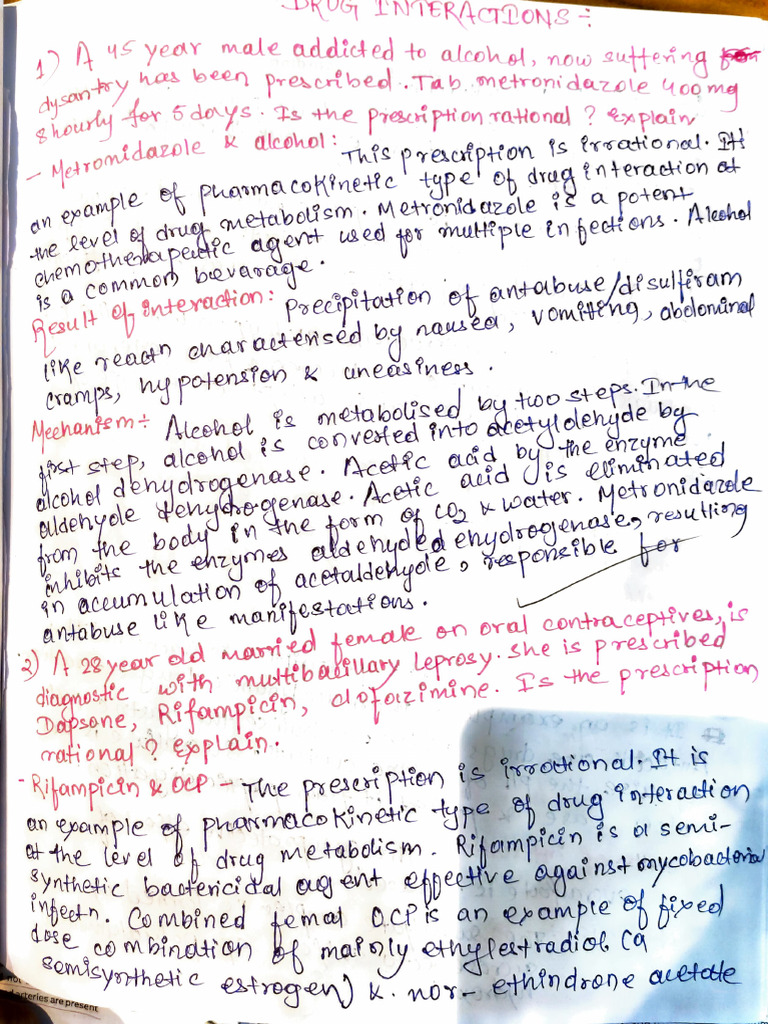 DRUG INTERACTIONS :-
1) A 45 year male addicted to alcohol, now suffering
dysantry has been prescribed. Tab. metronidazole 400mg
8 hourly for 5 days. Is the prescription rational? explain
- Metronidazole & alcohol:
This prescription is irrational. It
an example of pharmacokinetic type of drug interaction at
the level of drug metabolism. Metronidazole is a potent
chemotherapeutic agent used for multiple infections. Alcohol
is a common bevarage.
Result of interaction: Precipitation of antabuse/disulfiram
like reactn characterised by nausea, vomitting, abdominal
cramps, hypotension & uneasiness.
Mechanism÷ Alcohol is metabolised by two steps. In the
first step, alcohol is converted into acetyldehyde by
alcohol dehydrogenase. Acetic acid by the enzyme
aldehyde dehydrogenase. Acetic acid is eliminated
from the body in the form of CO2 & water. Metronidazole
inhibits the enzymes aldehyde dehydrogenase, resulting
in accumulation of acetaldehyde, responsible for
antabuse like manifestations.
2) A 28 year old married female on oral contraceptives, is
diagnostic with multibacillary leprosy. she is prescribed
Dapsone, Rifampicin, clofazimine. Is the prescription
rational? explain.
- Rifampicin & OCP - The prescription is irrational. It is
an example of pharmacokinetic type of drug interaction
at the level of drug metabolism. Rifampicin is a semi-
synthetic bactericidal agent effective against mycobacteria
infectn. Combined femal OCP is an example of fixed
dose combination of mainly ethylestradiol (a
semisynthetic estrogen) & nor-ethindrone acetate
not
arteries are present